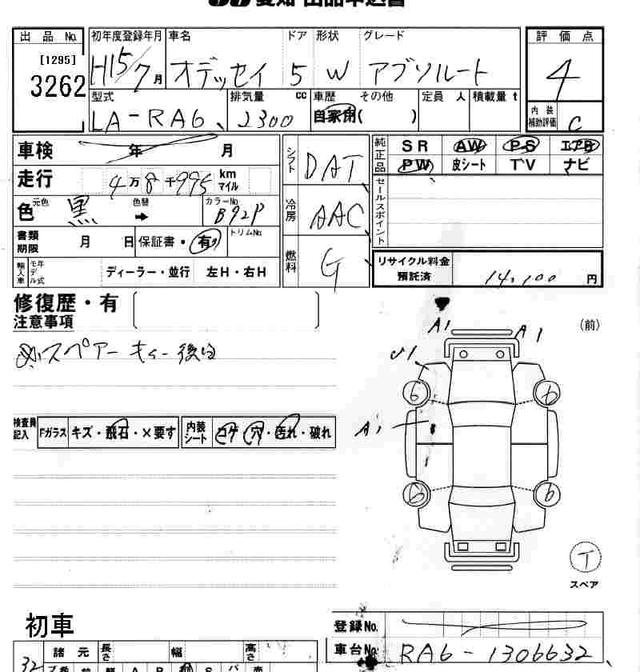 愛知 出品申込書
出品 No. 初年度登録年月 車名 ドア 形状 グレード 評価点
[1295] 3262 H15/7月 オデッセイ 5 W アブソルート 4
型式 排気量 cc 車歴 その他 定員 人 積載量 t 内装補助評価
LA-RA6 2300 自家用 ( ) C
車検 年 月 シフト DAT 純正品 SR AW PS エアB
PW 皮シート TV ナビ
走行 4万8千995 km マイル セールスポイント
色 元色 黒 色替 → カラーNo. B92P 冷房 AAC
書類期限 月 日 保証書・有 トリムNo. 燃料 G
輸入車 モデル年式 ディーラー・並行 左H・右H リサイクル料金預託済 14,100 円
修復歴・有
注意事項
スペアーキー後日
(前)
A1 A1
A1
6 6
6 6
検査員記入 Fガラス キズ・飛石・×要す 内装シート コゲ・穴・汚れ・破れ
T
スペア
初車 登録No.
車台No. RA6-1306632
32 諸元 長さ 幅 高さ